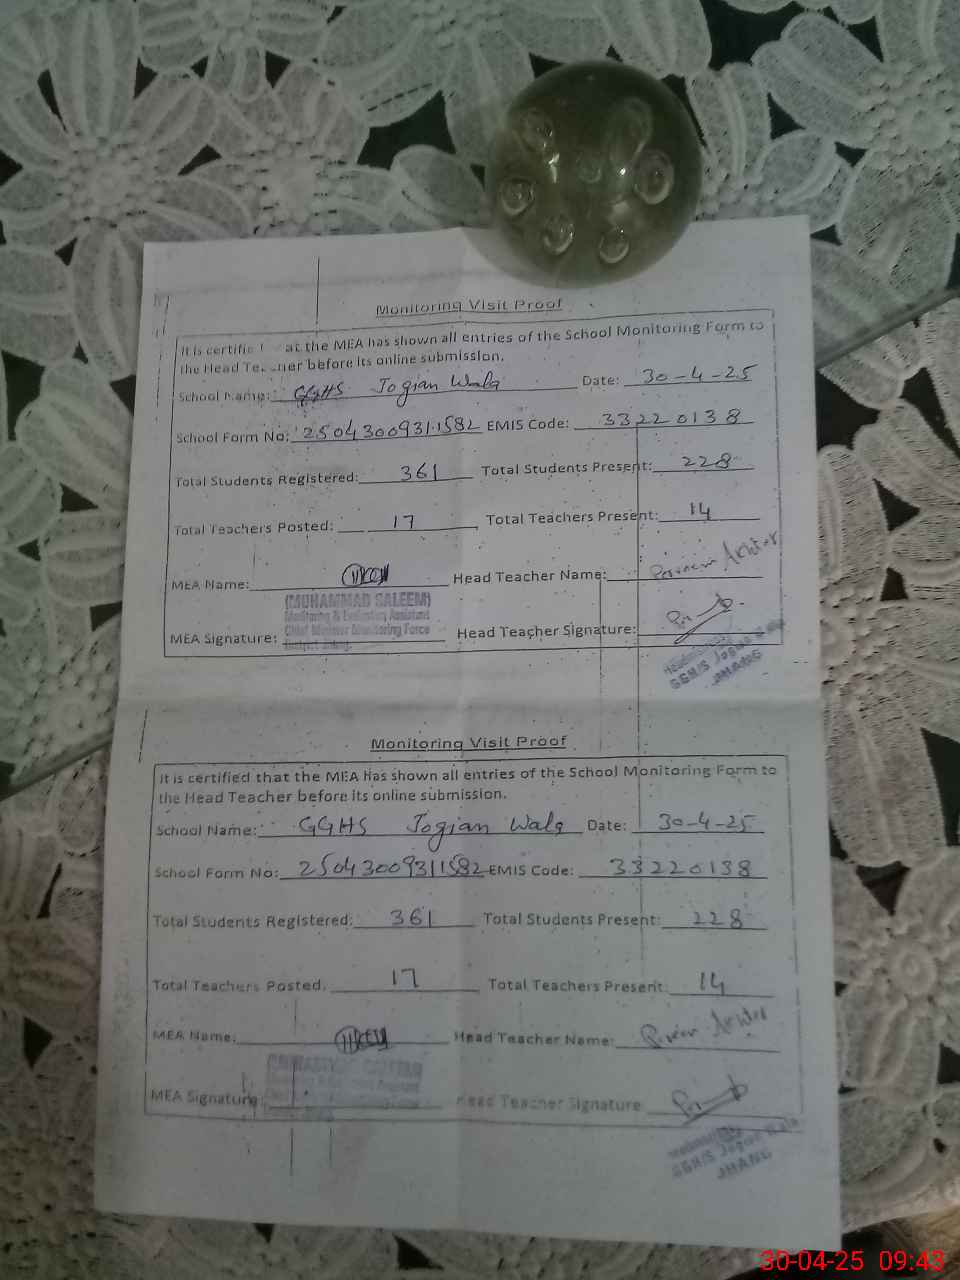 Monitoring Visit Proof
It is certifie at the MEA has shown all entries of the School Monitoring Form to
the Head Te her before its online submission.
School Name: GGHS Jogian Wala Date: 30-4-25
School Form No: 25043009311582 EMIS Code: 33220138
Total Students Registered: 361 Total Students Present: 228
Total Teachers Posted: 17 Total Teachers Present: 14
MEA Name: Head Teacher Name: Parveen Akhter
(MUHAMMAD SALEEM)
Monitoring & Evaluation Assistant
Chief Minister Monitoring Force
District Jhang.
MEA Signature: Head Teacher Signature:
GGHS Jogian Wala
JHANG
Monitoring Visit Proof
It is certified that the MEA has shown all entries of the School Monitoring Form to
the Head Teacher before its online submission.
School Name: GGHS Jogian Wala Date: 30-4-25
School Form No: 25043009311582 EMIS Code: 33220138
Total Students Registered: 361 Total Students Present: 228
Total Teachers Posted. 17 Total Teachers Present: 14
MEA Name: Head Teacher Name: Parveen Akhter
MEA Signature: Head Teacher Signature
GGHS Jogian Wala
JHANG
30-04-25 09:43